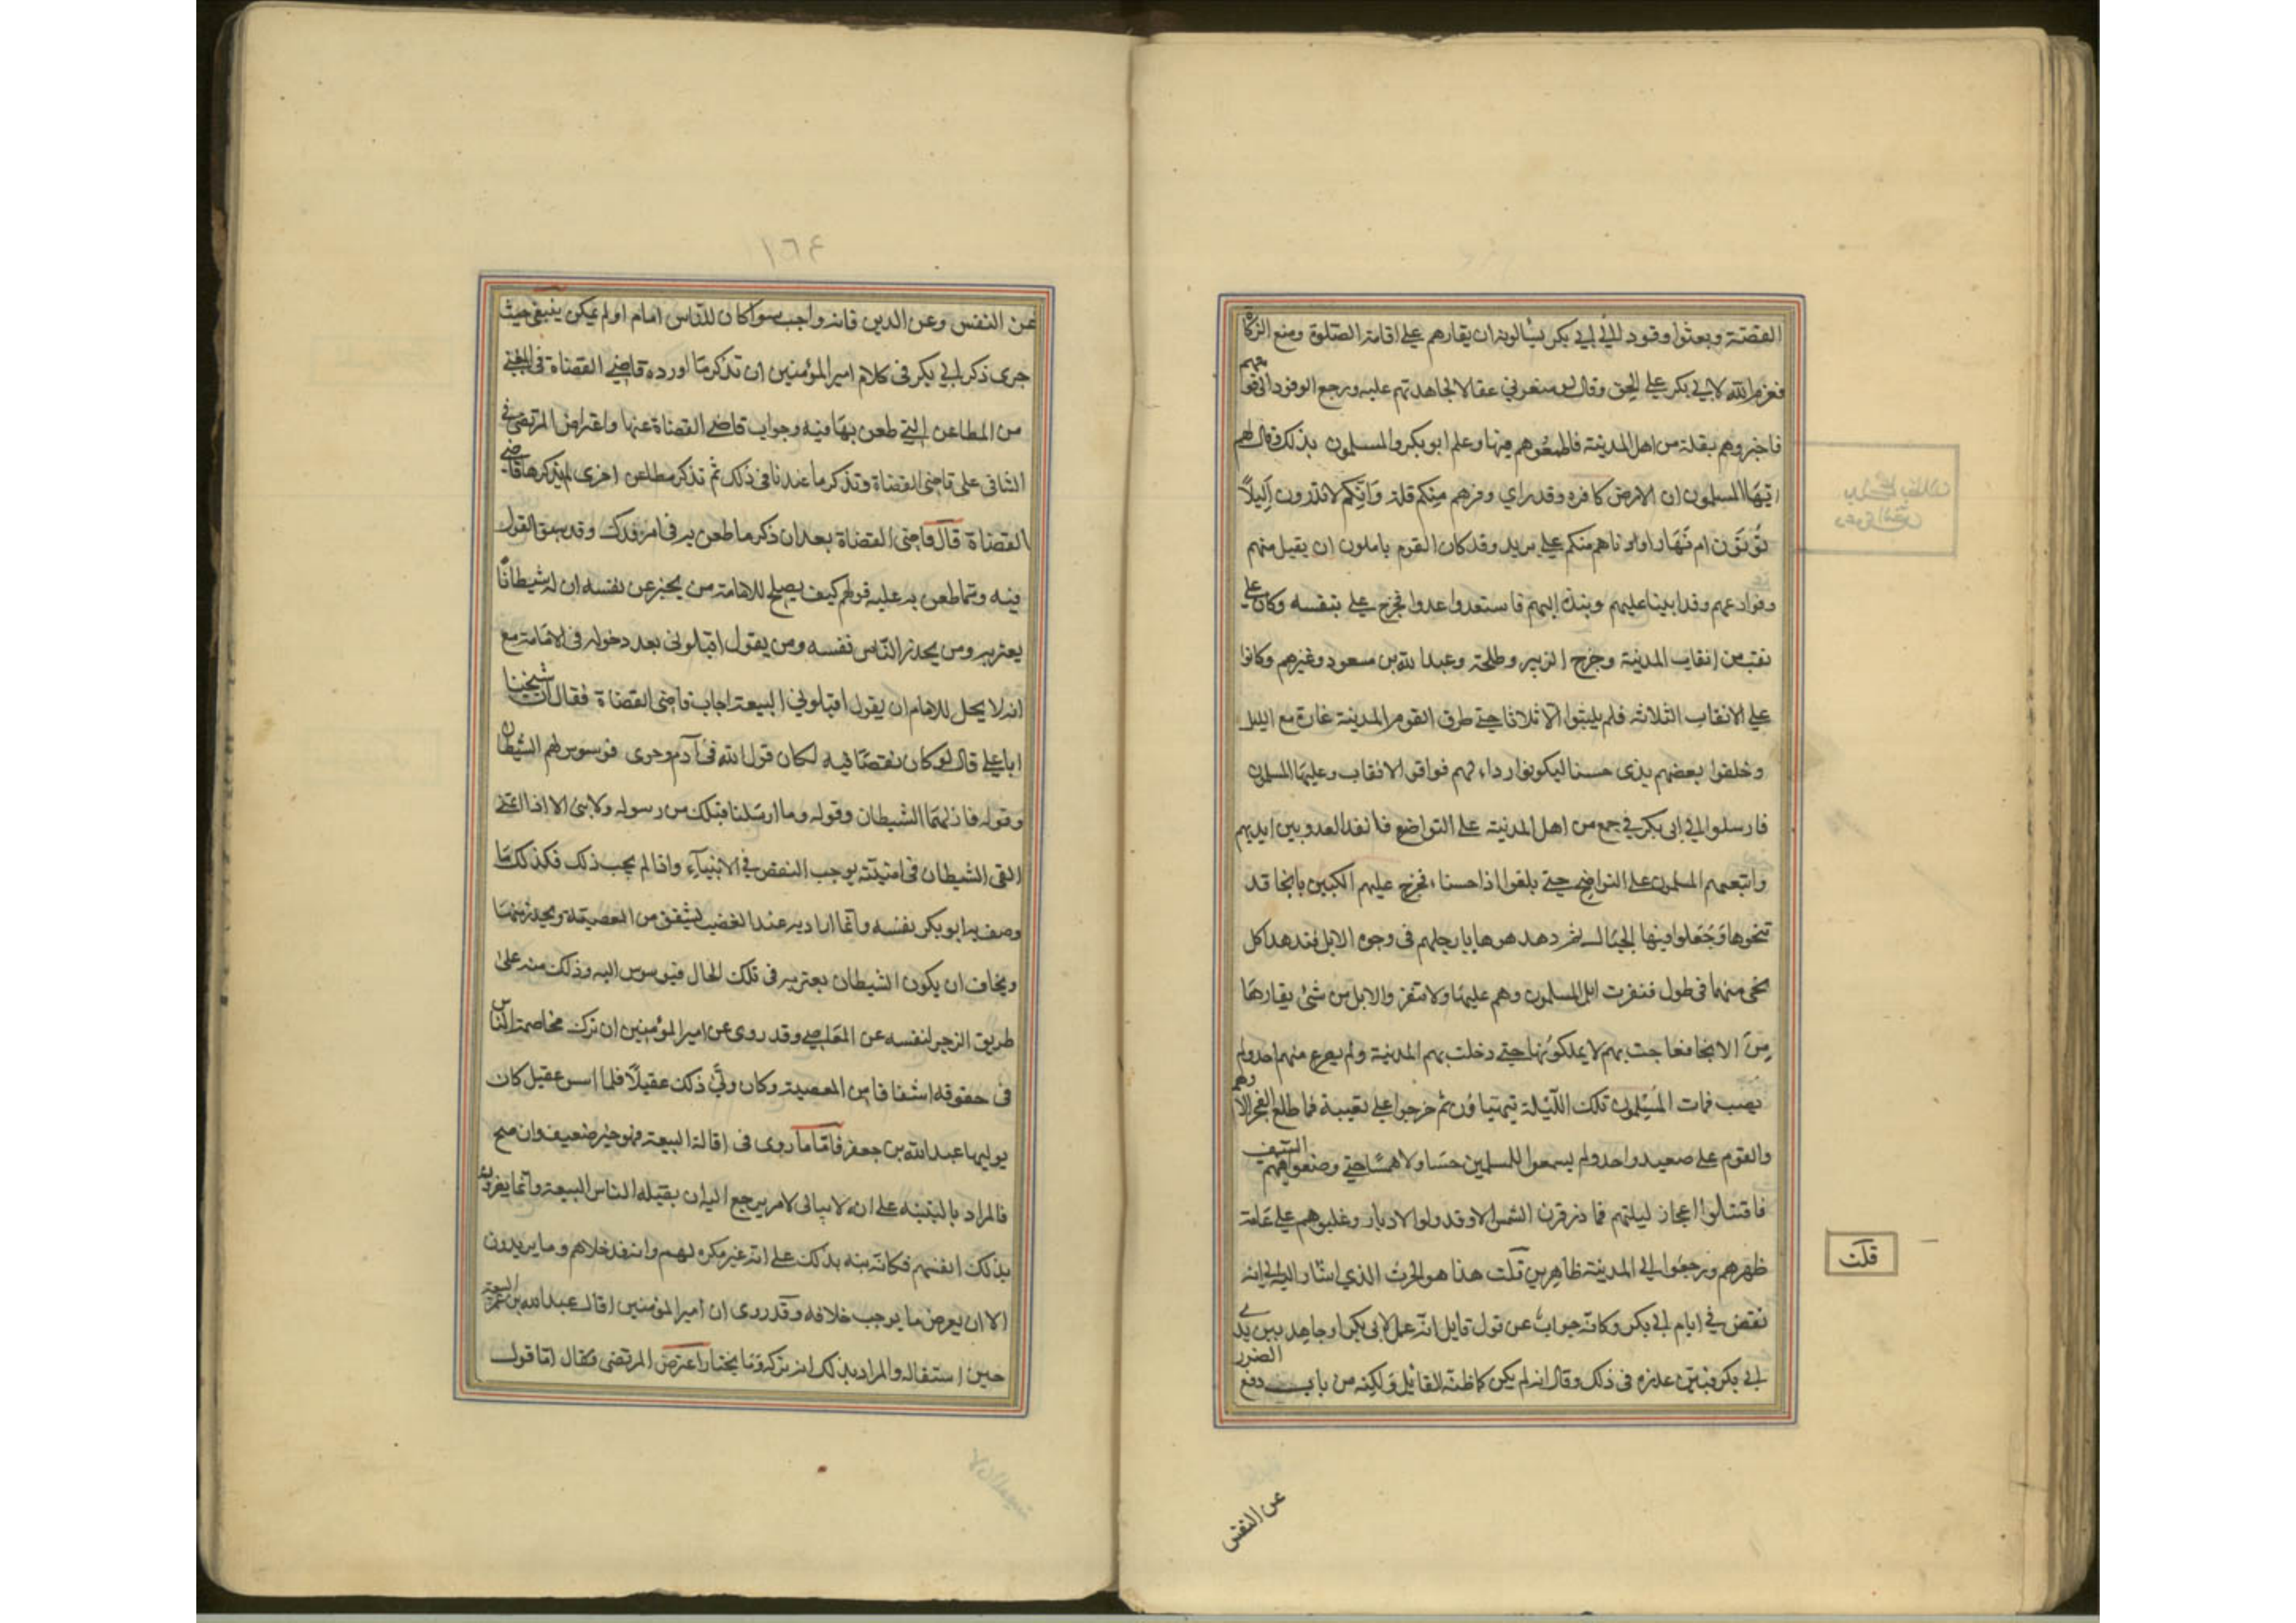 القصتة وبعثوا وفود الي ابي بكر يسالونه ان يقارهم علي اقامة الصلوة ومنع الزكاة
فعزم الله لابي بكر علي الحق وقال لو منعوني عقالا لجاهدتهم عليه ورجع الوفود الي قومهم
فاخبروهم بقلة من اهل المدينة فاطمعوهم فيها وعلم ابو بكر والمسلمون بذلك وقال لهم
ايّها المسلمون ان الارض كافره وقد راي وفدهم منكم قلة وانّكم لا تدرون اليلاً
تؤتون ام نَهَارا وادناهم منكم علي بريد وقد كان القوم ياملون ان يقبل منهم
وفوادعهم وقد ابينا عليهم وبنذ اليهم فاستعدوا عدوا فخرج علي بنفسه وكان علي
نقب من انقاب المدينة وخرج الزبير وطلحة وعبد الله بن مسعود وغيرهم وكانوا
علي الانقاب الثلاثه فلم يلبثوا الا ثلاثا حتي طرق القوم المدينة غارة مع الليل
وخلفوا بعضهم بذى حسنا ليكونوا رداء لهم فوافوا الانقاب وعليها المسلمون
فارسلوا الي ابى بكر في جمع من اهل المدينة على النواضع فانفذ العدو بين ايديهم
واتبعهم المسلمون علي النواضح حتي بلغوا اذا حسنا ، فخرج عليهم الكبين بانحا قد
تنخوها وَجَعَلوا فيها الحبال ثم دهدهوها بارجلهم فى وجوه الابل فتدهدا كل
نخى منها فى طول فنفرت ابل المسلمون وهم عليها ولا تنفر والابل من شئ نفارها
مِنَ الانحا فعاجت بهم لا يملكونها حتي دخلت بهم المدينة ولم يصرع منهم احد ولم
يصب فبات المسلمون تلك اللّيلة تيهتياؤن ثم خرجوا علي تعيبة فما طلع الفجر الا وهم
والقوم علي صعيد واحد ولم يسمعوا للمسلمين حسَا ولا همسًا حتي وضعوا فيهم السّيف
فاقتتالوا اعجاز ليلتهم فما ذر قرن الشمس الا وقد ولوا الادبار وغلبوهم علي عَامة
ظهرهم ورجعوا الي المدينة ظاهرين قلت هذا هو الحرث الذي اشار اليه الي انه
نهض في ايام ابي بكر وكانّه جوابٌ عن قول قايل انّه عمل لابى بكر او جاهد بين يدي
ابي بكر فبيّن عذره فى ذلك وقال انه لم يكن كما ظنه القائل وَلكِنه من باب دفع الضرر
قلت
عن النفس
١٦٤
عن النفس وعن الدين فانه واجب سوا كان للنّاس امام او لم يكن ينبغي حيث
جرى ذكر ابي بكر فى كلام امير المؤمنين ان نذكر مَا اورده قاضي القضاة فى المغني
من المطاعن التي طعن بها فيه وجواب قاضى القضاة عنها واعتراض المرتضى في
الشافى على قاضى القضاة ونذكر ما عندنا فى ذلك ثم نذكر مطاعن اخرى لم يذكرها قاضي
القضاة قال قاضى القضاة بعد ان ذكر ما طعن به فى امر فدك وقد سبق القول
فيه ومّما طعن به عليه قولهم كيف يصلح للامامة من يخبر عن نفسه ان له شيطانًا
يعتريه ومن يحذر النّاس نفسه ومن يقول اقيلونى بعد دخوله فى الامَامة مع
انه لا يحل للامام ان يقول اقيلونى البيعة اجاب قاضى القضاة فقال ان شيخنا
ابا علي قال لو كان نقصًا فيه لكان قول الله فى آدم وحوى فوسوس لهم الشيطان
وقوله فازلهمَا الشيطان وقوله وما ارسلنا قبلك من رسول ولا نبى الا اذا تمنّى
القى الشيطان فى امنيتّه يوجب النقص في الانبيآء واذا لم يجب ذلك فكذلك مَا
وصف به ابو بكر نفسه وانّما اراد به عند الغضب ليشفق من المعصية ويحذر منهَا
ويخاف ان يكون الشيطان يعتريه فى تلك الحال فيوسوس اليه وذلك منه على
طريق الزجر لنفسه عن المعَاصي وقد روى عن امير المؤمنين ان ترك مخاصمة النّاس
فى حقوقه اشفاقا من المعصية وكان ولّي ذلك عقيلاً فلما اسن عقيل كان
يوليها عبد الله بن جعفر فامّا ما روى فى اقالة البيعة فهو خبر ضعيف وان صح
فالمراد به التنبيه على انه لا يبالى لامر يرجع اليه ان يقيله الناس البيعة وانّما يضرون
بذلك انفسهم فكانّه نبه بذلك علي انّه غير مكره لهم وانه قد خلاهم وما يريدون
الا ان يعرض ما يوجب خلافه وقد روى ان امير المؤمنين اقال عبد الله بن عمر البيعة
حين استقاله والمراد بذلك انه تركه وَمَا يختار اعترض المرتضى فقال امّا قول